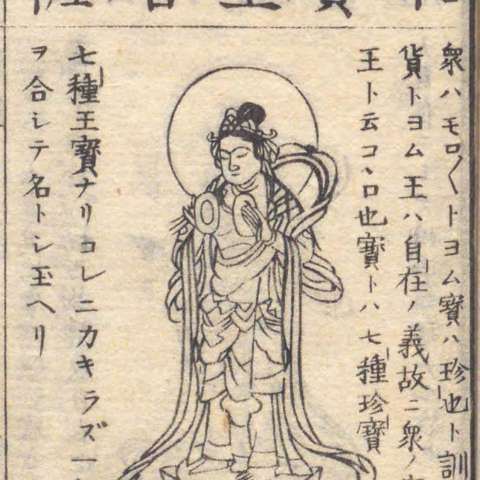 寳王
衆ハモロ〱トヨム寳ハ珍也ト訓
貨トヨム王ハ自在ノ義故ニ衆ノ
王ト云コヽロ也寳トハ七種珍寳
七種王寳ナリコレニカキラズ一
ヲ合シテ名トシ玉ヘリ